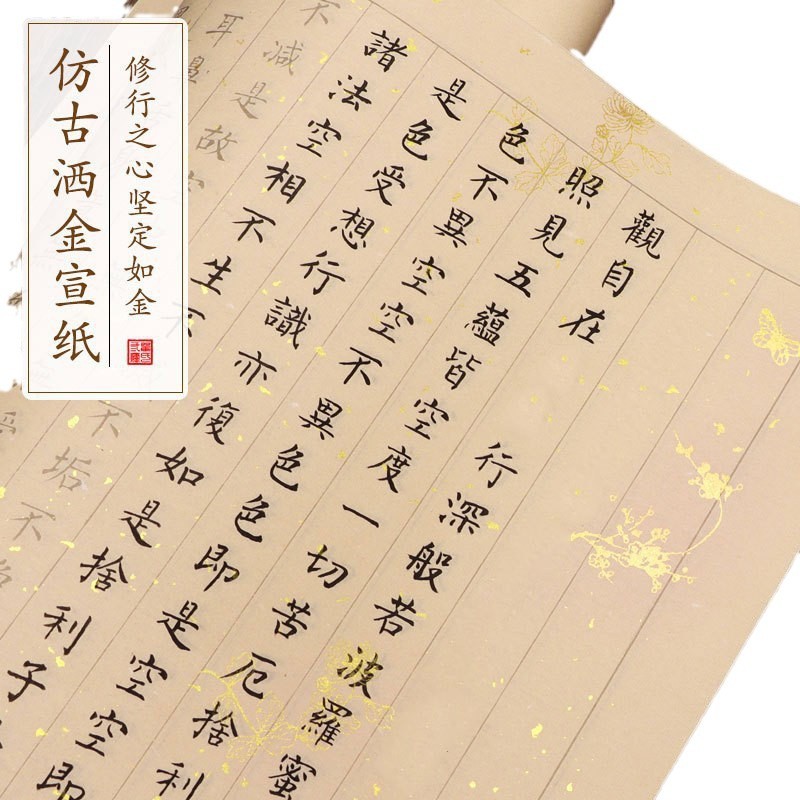 仿古洒金宣纸
修行之心坚定如金
觀自在 行深般若波羅蜜
照見五蘊皆空度一切苦厄捨利
色不異空空不異色色即是空空即
是色受想行識亦復如是捨利子
諸法空相不生不 不垢不
不減是故空
耳